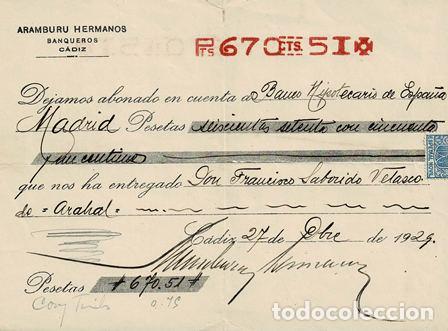 ARAMBURU HERMANOS
BANQUEROS
CÁDIZ
PTS 670 CTS. 51
Dejamos abonado en cuenta a Banco Hipotecario de España
Madrid Pesetas seiscientas setenta con cincuenta
y un centimos
que nos ha entregado Don Francisco Saborido Velasco
de =Arahal=
Cádiz 27 de Obre de 1929.
Aramburu Hermanos
Pesetas #670.51#
0.75
todocoleccion